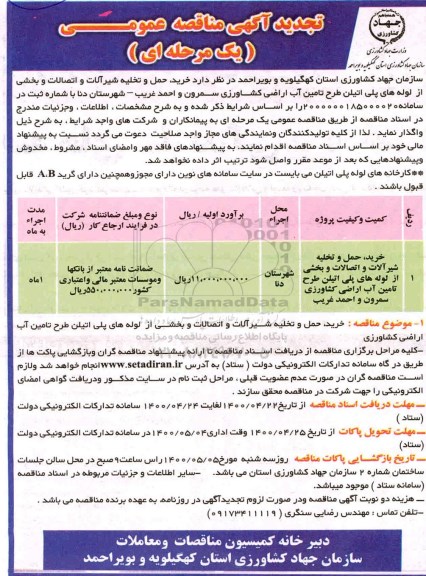 تجدید آگهی مناقصه عمومی
( یک مرحله ای )
جهاد
کشاورزی
وزارت جهاد کشاورزی
سازمان جهاد کشاورزی استان کهگیلویه و بویراحمد
سازمان جهاد کشاورزی استان کهگیلویه و بویراحمد در نظر دارد خرید، حمل و تخلیه شیرآلات و اتصالات و بخشی
از لوله های پلی اتیلن طرح تامین آب اراضی کشاورزی سمرون و احمد غریب – شهرستان دنا با شماره ثبت در
سامانه ۲۰۰۰۰۰۰۱۸۵۰۰۰۰۲۰ را بر اساس شرایط ذکر شده و به شرح مشخصات ، اطلاعات ، وجزئیات مندرج
در اسناد مناقصه از طریق مناقصه عمومی یک مرحله ای به پیمانکاران و شرکت های واجد شرایط ، به شرح ذیل
واگذار نماید . لذا از کلیه تولیدکنندگان ونمایندگی های مجاز واجد صلاحیت دعوت می گردد نسبت به پیشنهاد
مالی خود بر اساس اسناد مناقصه اقدام نمایند. به پیشنهادهای فاقد مهر وامضای اسناد ، مشروط ، مخدوش
وپیشنهادهایی که بعد از موعد مقرر واصل شود ترتیب اثر داده نخواهد شد.
**کارخانه های لوله پلی اتیلن می بایست در سایت سامانه های نوین دارای مجوزوهمچنین دارای گرید A.B قابل
قبول باشند .
ردیف | کمیت وکیفیت پروژه | محل اجراء | برآورد اولیه / ریال | نوع ومبلغ ضمانتنامه شرکت در فرایند ارجاع کار (ریال) | مدت اجراء به ماه
۱ | خرید، حمل و تخلیه شیرآلات و اتصالات و بخشی از لوله های پلی اتیلن طرح تامین آب اراضی کشاورزی سمرون و احمد غریب | شهرستان دنا | ۱۱,۰۰۰,۰۰۰,۰۰۰ریال | ضمانت نامه معتبر از بانکها وموسسات معتبر مالی واعتباری کشور۵۵۰,۰۰۰,۰۰۰ریال | ۱ماه
ParsNamadData
پایگاه اطلاع رسانی مناقصه و مزایده
۱- موضوع مناقصه : خرید، حمل و تخلیه شیرآلات و اتصالات و بخشی از لوله های پلی اتیلن طرح تامین آب
اراضی کشاورزی
–کلیه مراحل برگزاری مناقصه از دریافت اسناد مناقصه تا ارائه پیشنهاد مناقصه گران وبازگشایی پاکت ها از
طریق در گاه سامانه تدارکات الکترونیکی دولت ( ستاد ) به آدرس www.setadiran.ir انجام خواهد شد ولازم
است مناقصه گران در صورت عدم عضویت قبلی ، مراحل ثبت نام در سایت مذکور ودریافت گواهی امضای
الکترونیکی را جهت شرکت در مناقصه محقق سازند .
– مهلت دریافت اسناد مناقصه از تاریخ ۱۴۰۰/۰۴/۲۲ لغایت ۱۴۰۰/۰۴/۲۴ سامانه تدارکات الکترونیکی دولت
(ستاد )
– مهلت تحویل پاکات از تاریخ ۱۴۰۰/۰۴/۲۵ وقت اداری ۱۴۰۰/۰۵/۰۴ در سامانه تدارکات الکترونیکی دولت
(ستاد)
– تاریخ بازگشایی پاکات مناقصه روزسه شنبه مورخ ۱۴۰۰/۰۵/۰۵ راس ساعت ۹ صبح در محل سالن جلسات
ساختمان شماره ۲ سازمان جهاد کشاورزی استان می باشد. –سایر اطلاعات و جزئیات مربوطه در اسناد مناقصه
(سامانه ستاد ) موجود میباشد.
– هزینه دو نوبت آگهی مناقصه ودر صورت لزوم تجدیدآگهی در روزنامه، به عهده برنده مناقصه می باشد .
–تلفن تماس : مهندس رضایی سنگری ( ۰۹۱۷۳۴۱۱۱۱۹ )
دبیر خانه کمیسیون مناقصات ومعاملات
سازمان جهاد کشاورزی استان کهگیلویه و بویراحمد